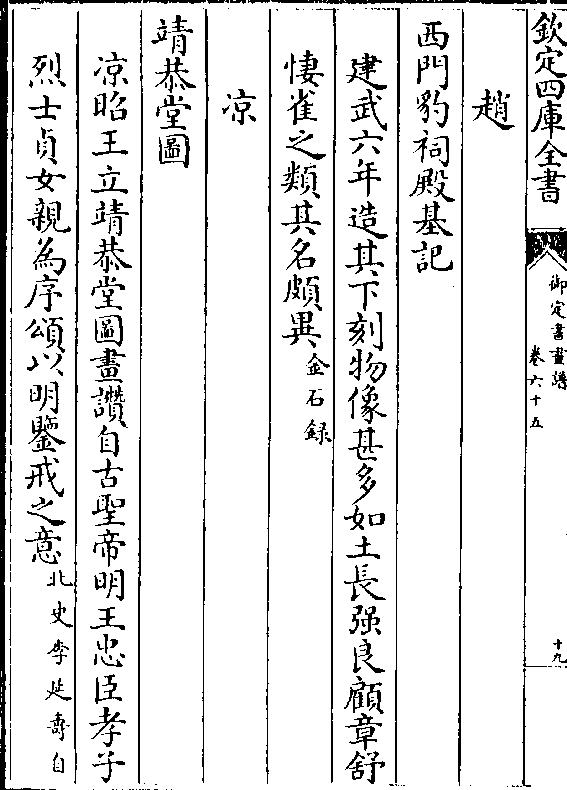 欽定四庫全書
御定書畫譜
卷六十五
十九
趙
西門豹祠殿基記
建武六年造其下刻物像甚多如土長强良顧章舒
悽雀之類其名頗異金石録
凉
靖恭堂圖
凉昭王立靖恭堂圖畫讚自古聖帝明王忠臣孝子
烈士貞女親為序頌以明鑒戒之意北史李延壽自